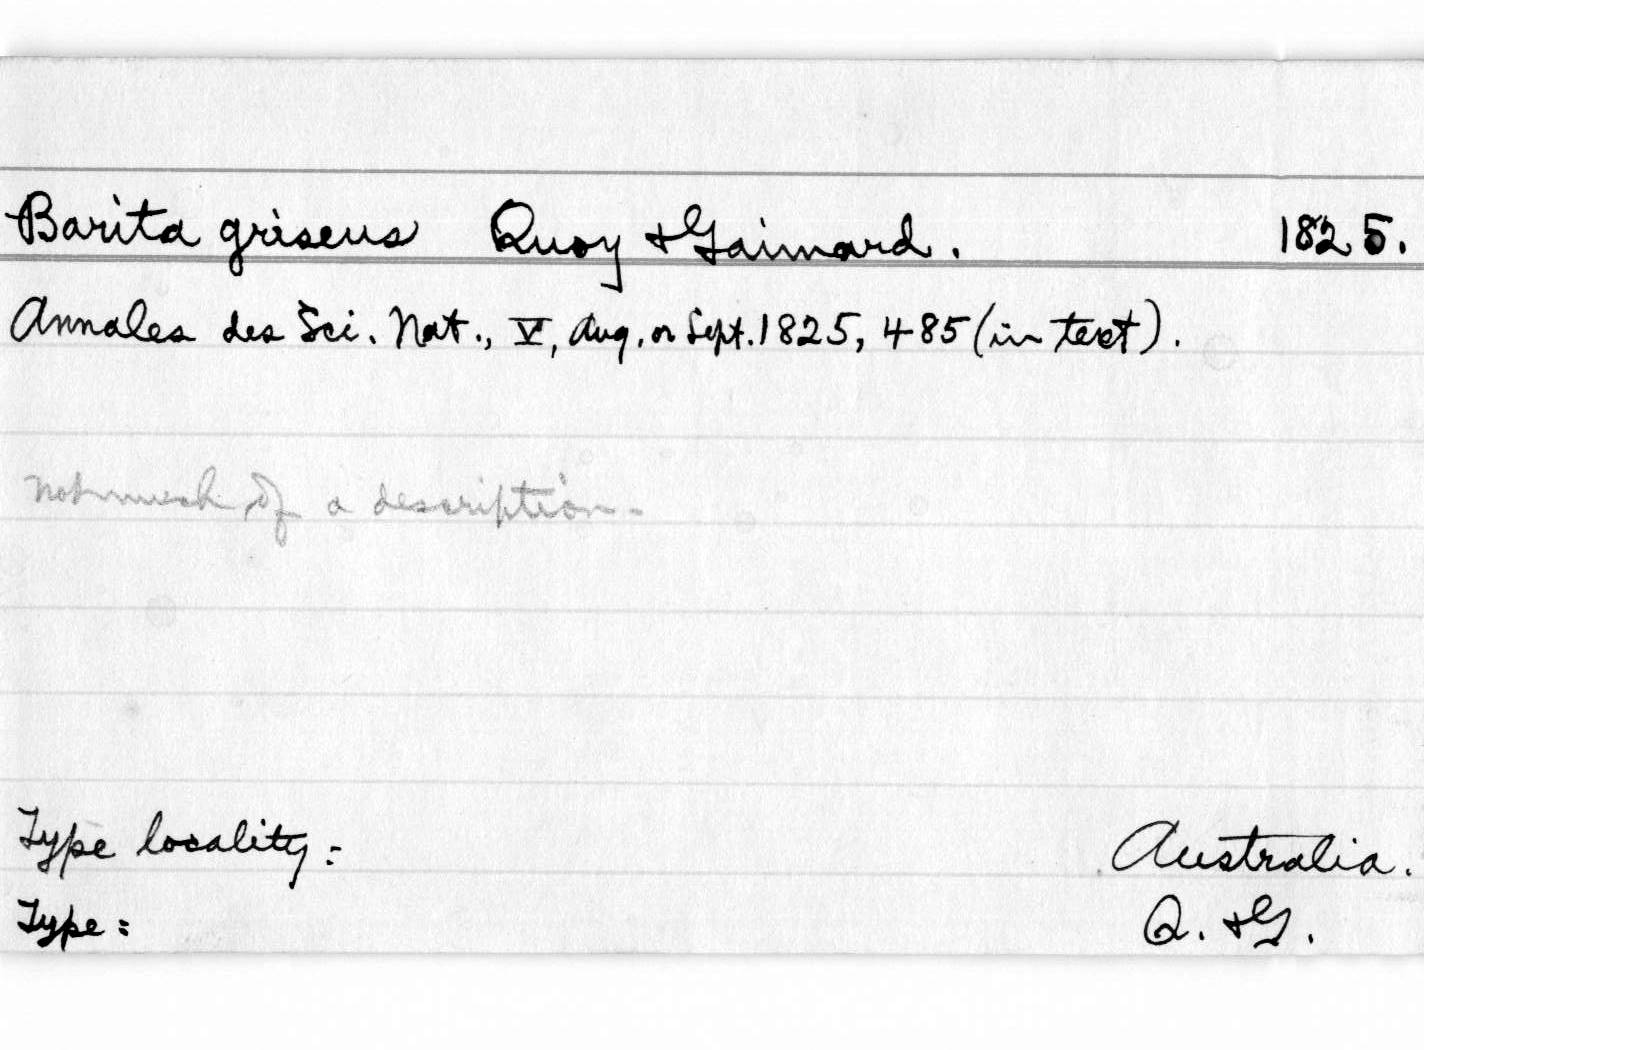 Barita griseus Quoy & Gaimard. 1825.
Annales des Sci. Nat., V, Aug. or Sept. 1825, 485 (in text).
not much of a description.
Type locality: Australia.
Type: Q. & G.